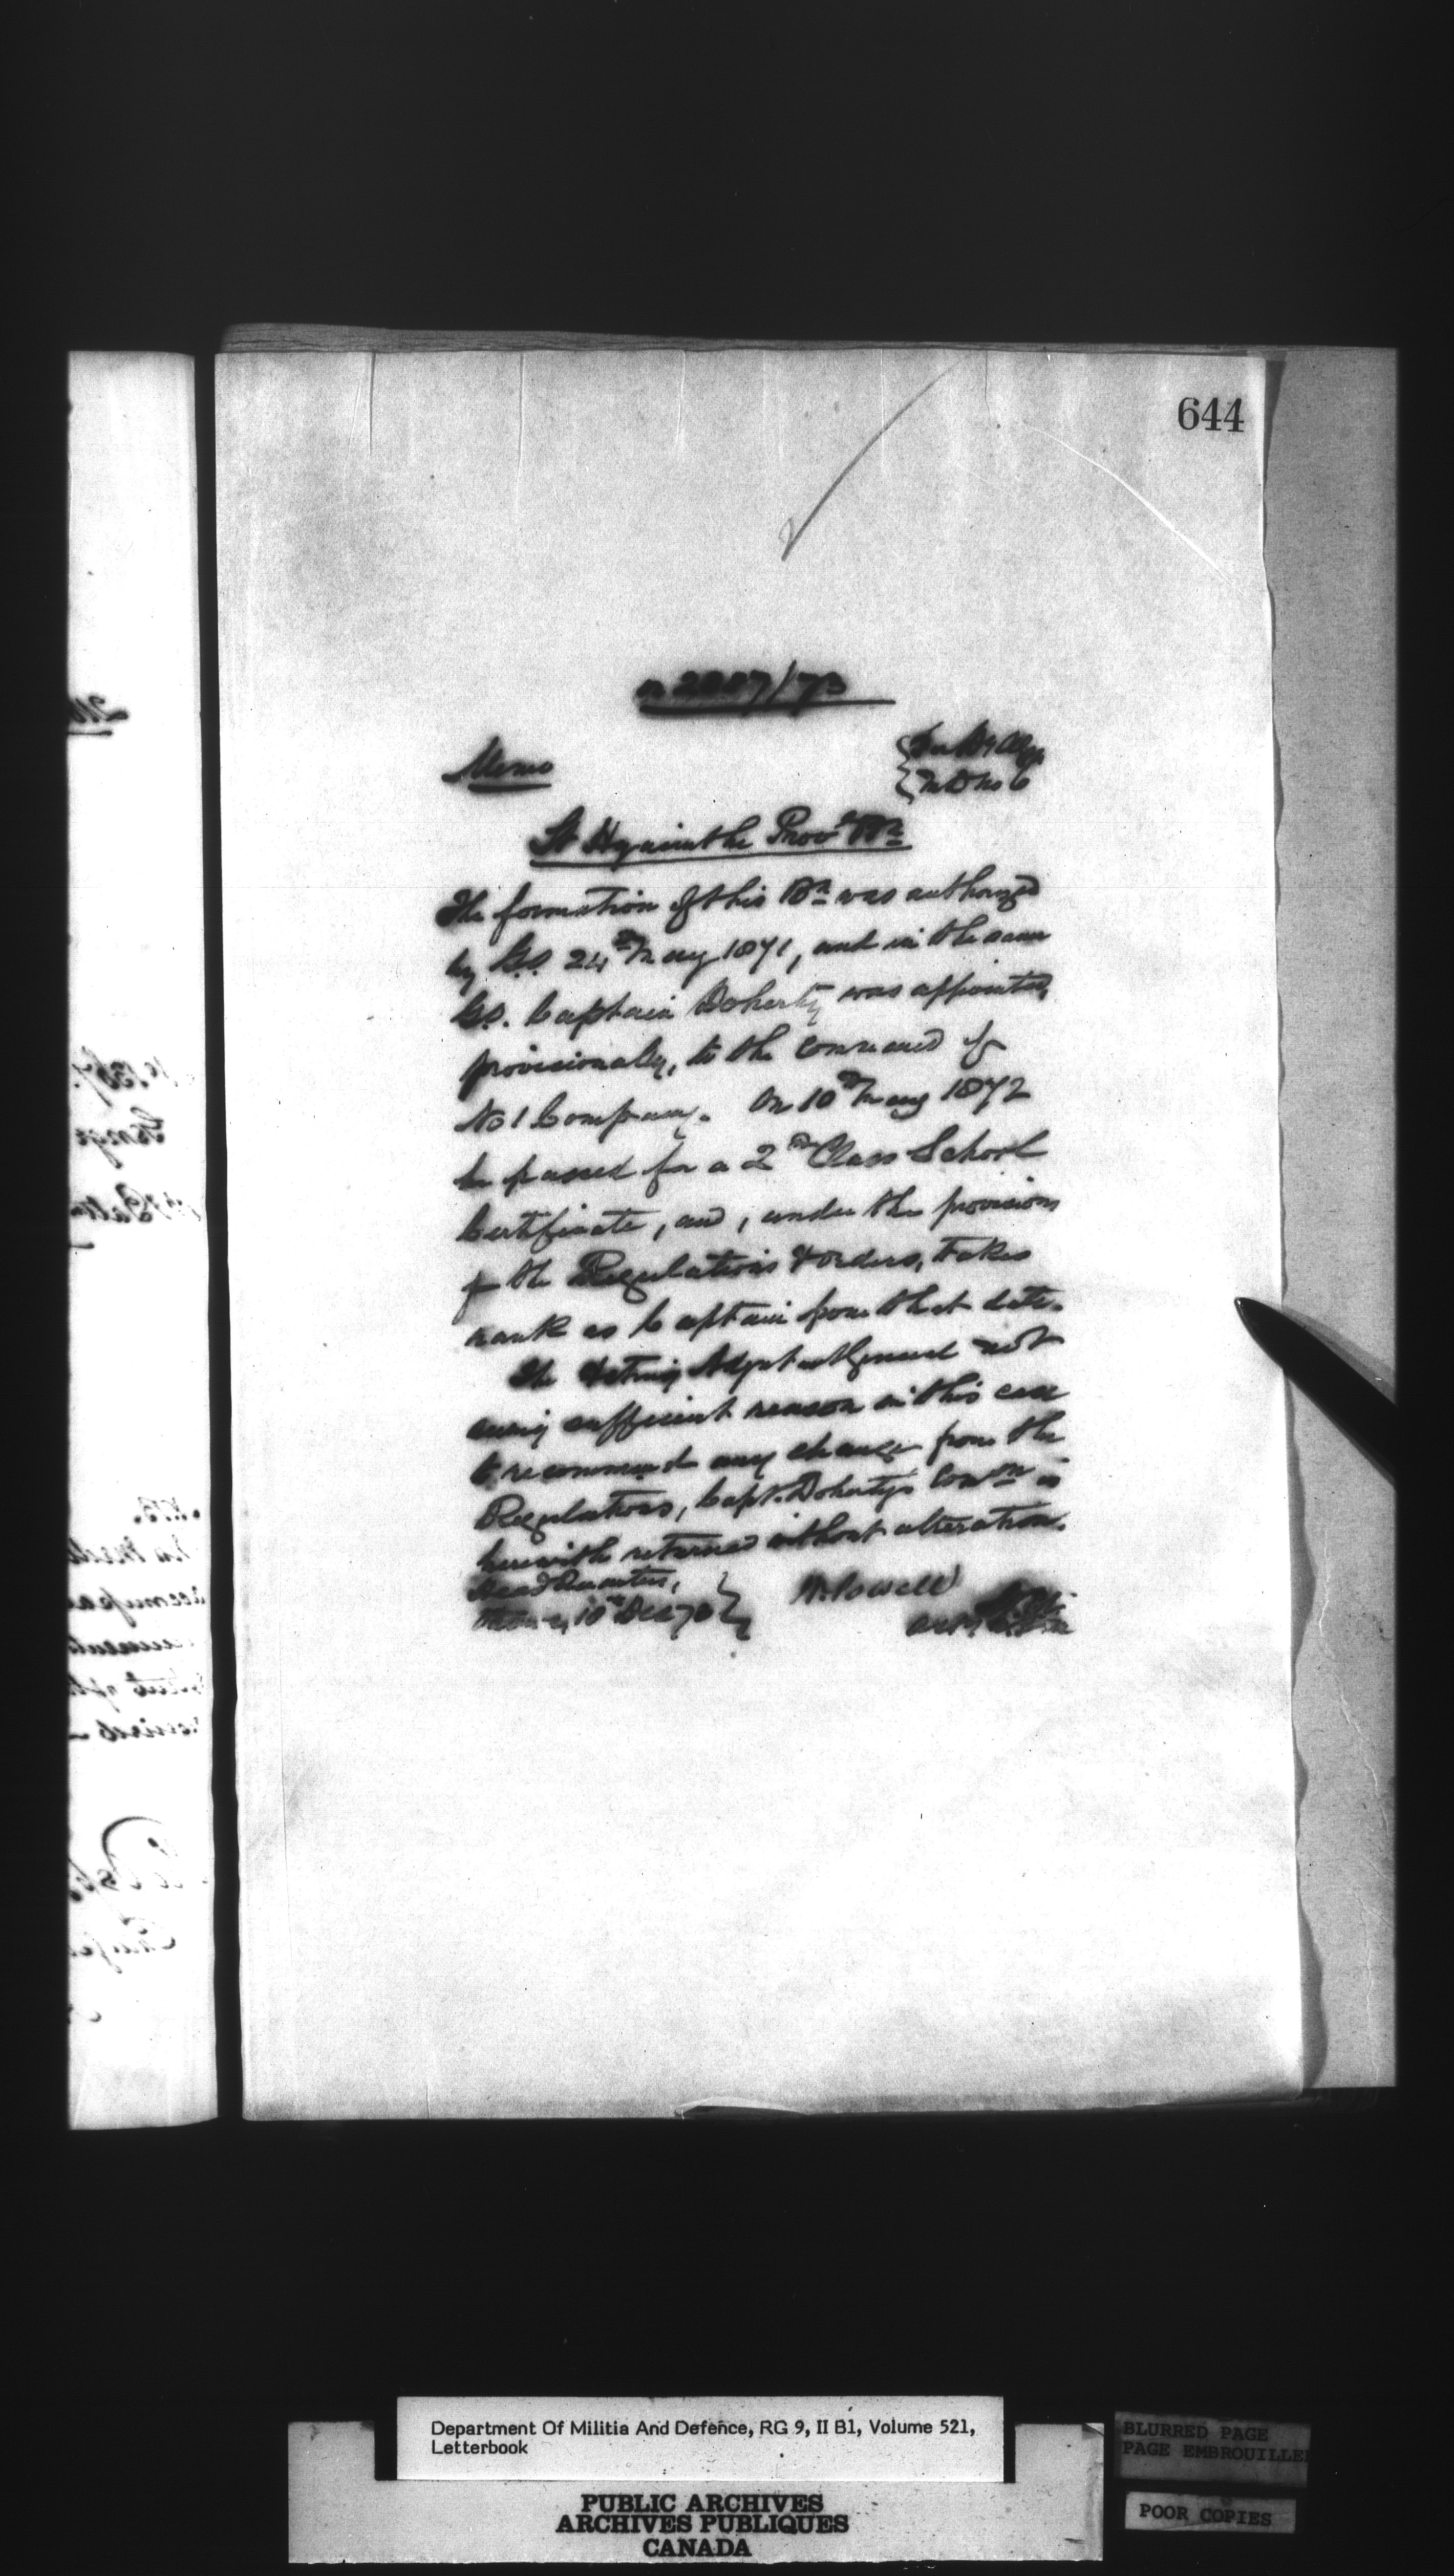 644
2007/73
Memo
M D No 6
St Hyacinthe Prov'l Bn
The formation of this Bn was authorized
by G.O. 24th May 1871, and in the same
G.O. Captain Doherty was appointed,
provisionally, to the command of
No 1 Company. On 10th May 1872
he passed for a 2nd Class School
Certificate, and, under the provisions
of the Regulations & orders, takes
rank as Captain from that date.
The Acting Adjutant General not
seeing sufficient reason in this case
to recommend any change from the
Regulations, Capt. Doherty's Comn is
herewith returned without alteration.
Head Quarters,
Ottawa, 10th Dec 73
W. Powell
Department Of Militia And Defence, RG 9, II B1, Volume 521,
Letterbook
PUBLIC ARCHIVES
ARCHIVES PUBLIQUES
CANADA
BLURRED PAGE
PAGE EMBROUILLEE
POOR COPIES